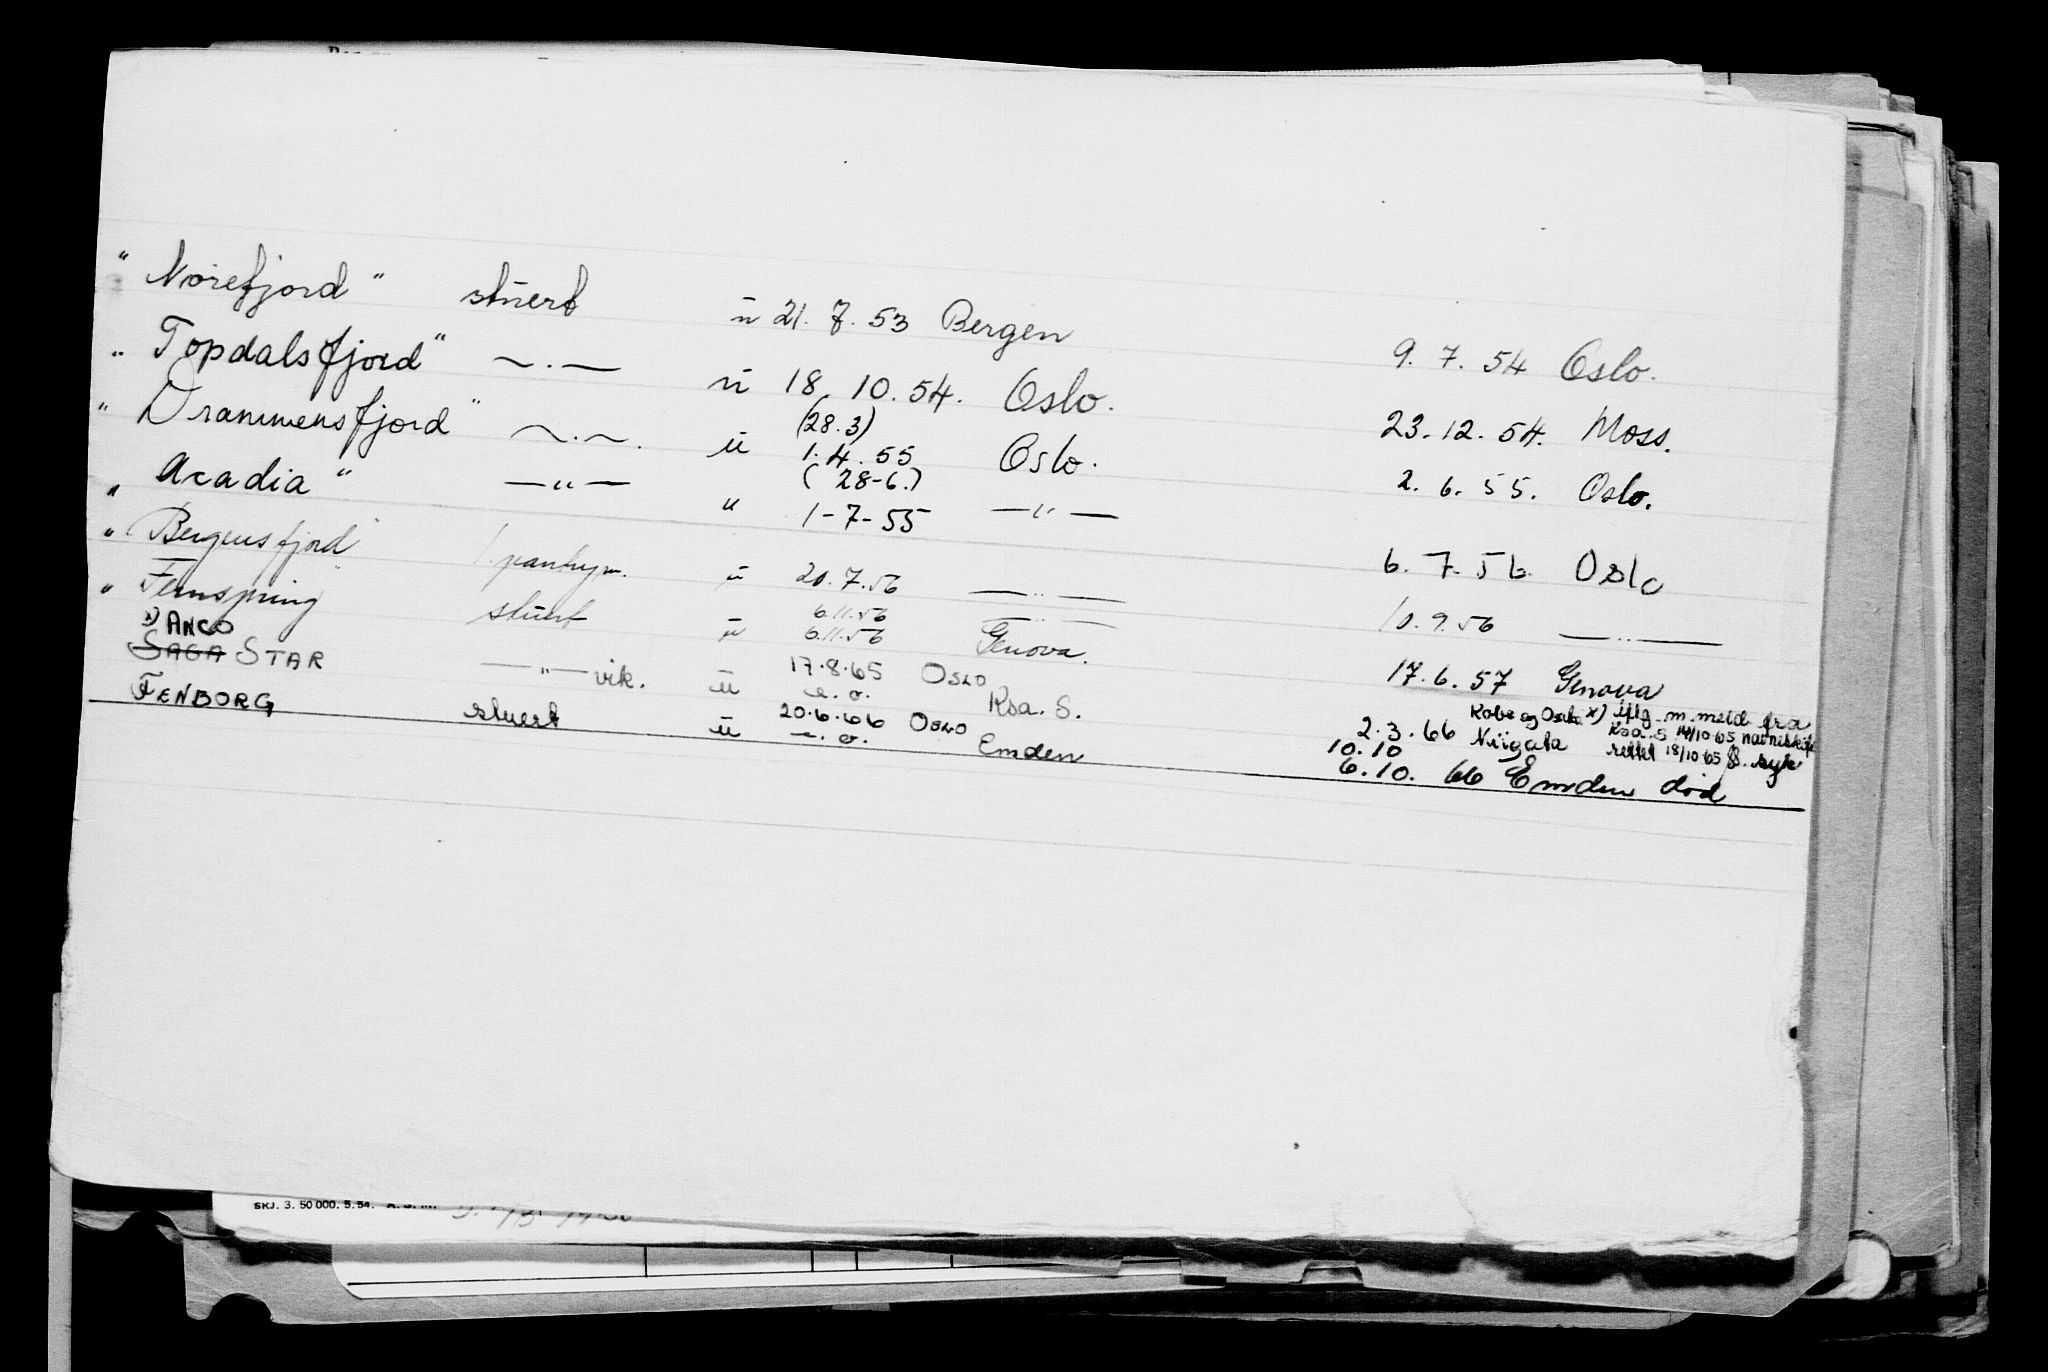 " Norefjord " stuert u 21. 7. 53 Bergen 9. 7. 54 Oslo.
" Topdalsfjord " ~ . — u 18. 10. 54. Oslo. 23. 12. 54. Moss.
(28.3)
" Drammensfjord " ~ . ~ . u 1. 4. 55 Oslo. 2. 6. 55. Oslo.
(28-6.)
" Acadia " — " — u 1-7-55 — " — 6. 7. 56. Oslo
" Bergensfjord " 1. pantrym. u 20. 7. 56 — " — 10. 9. 56 — " —
6.11.56 — " —
" Fernspring " stuert u 6.11.56 Genova. 17. 6. 57 Genova
x) ANCO
SAGA STAR — " — vik. u 17.8.65 OSLO
e. o. Ksa. S. 2. 3. 66 Niigata
Kobe og x) iflg. m. meld fra
Ksa. S 14/10 65
rettet 18/10 65 syk
FENBORG stuert u 20.6.66 OSLO
e. o. Emden
10.10
6.10. 66 Emden død
SKJ. 3. 50 000. 5. 54.